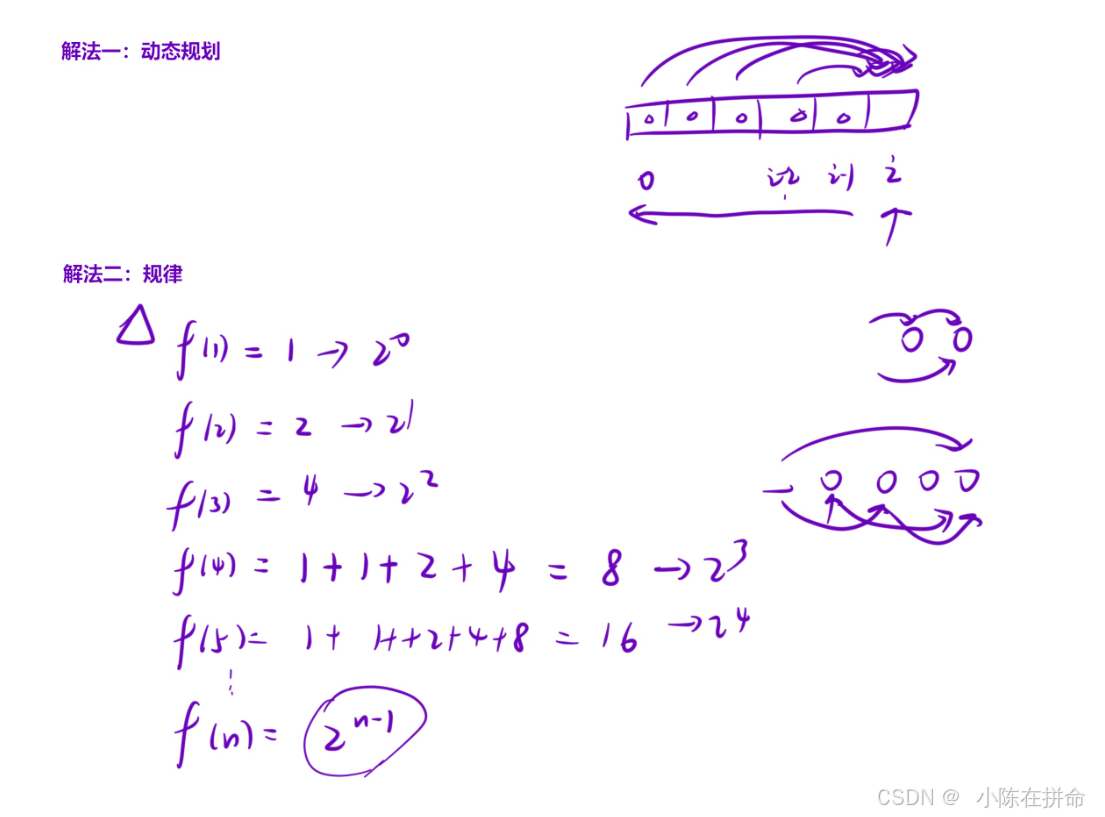 解法一：动态规划
0 0 0 0 0
0 i-2 i-1 i
解法二：规律
f(1) = 1 → 2^0
0 0
f(2) = 2 → 2^1
f(3) = 4 → 2^2
0 0 0 0
f(4) = 1+1+2+4 = 8 → 2^3
f(5) = 1+1++2+4+8 = 16 → 2^4
f(n) = 2^n-1
CSDN @ 小陈在拼命